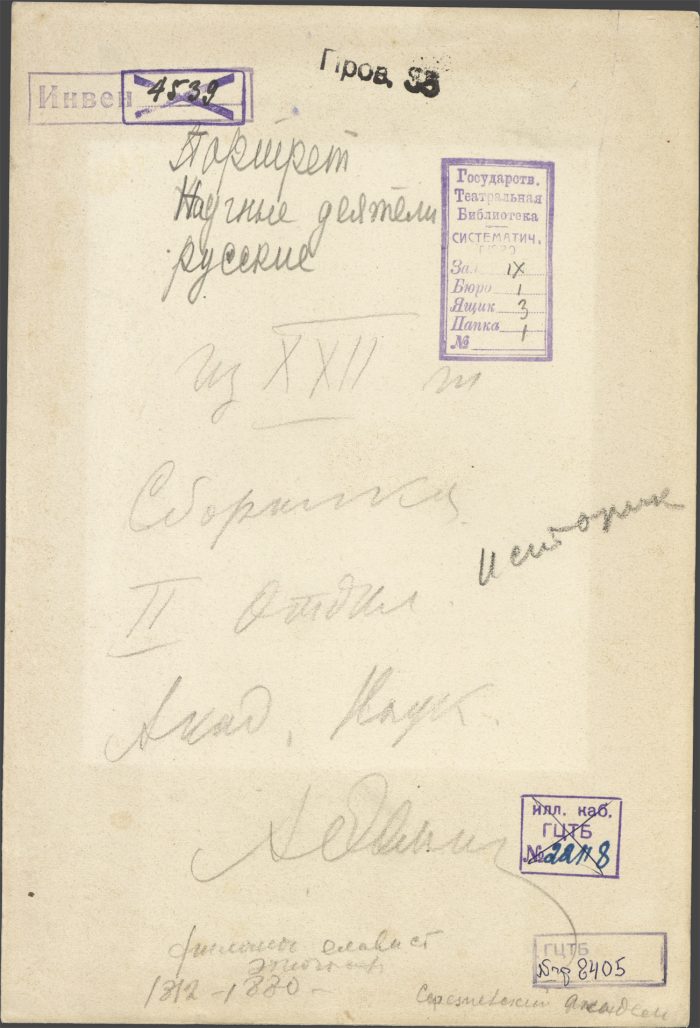 Пров. 35
Инвен
4539
Портрет
Научные деятели
русские
Государств.
Театральная
Библиотека
СИСТЕМАТИЧ.
БЮРО
Зал IX
Бюро 1
Ящик 3
Папка 1
№
из XXII т
Сборника
историк
II Отдел.
Акад. Наук.
илл. каб.
ГЦТБ
№ 22118
филолог славист
этнограф
1812 - 1880 -
ГЦТБ
8405
Срезневский Академик